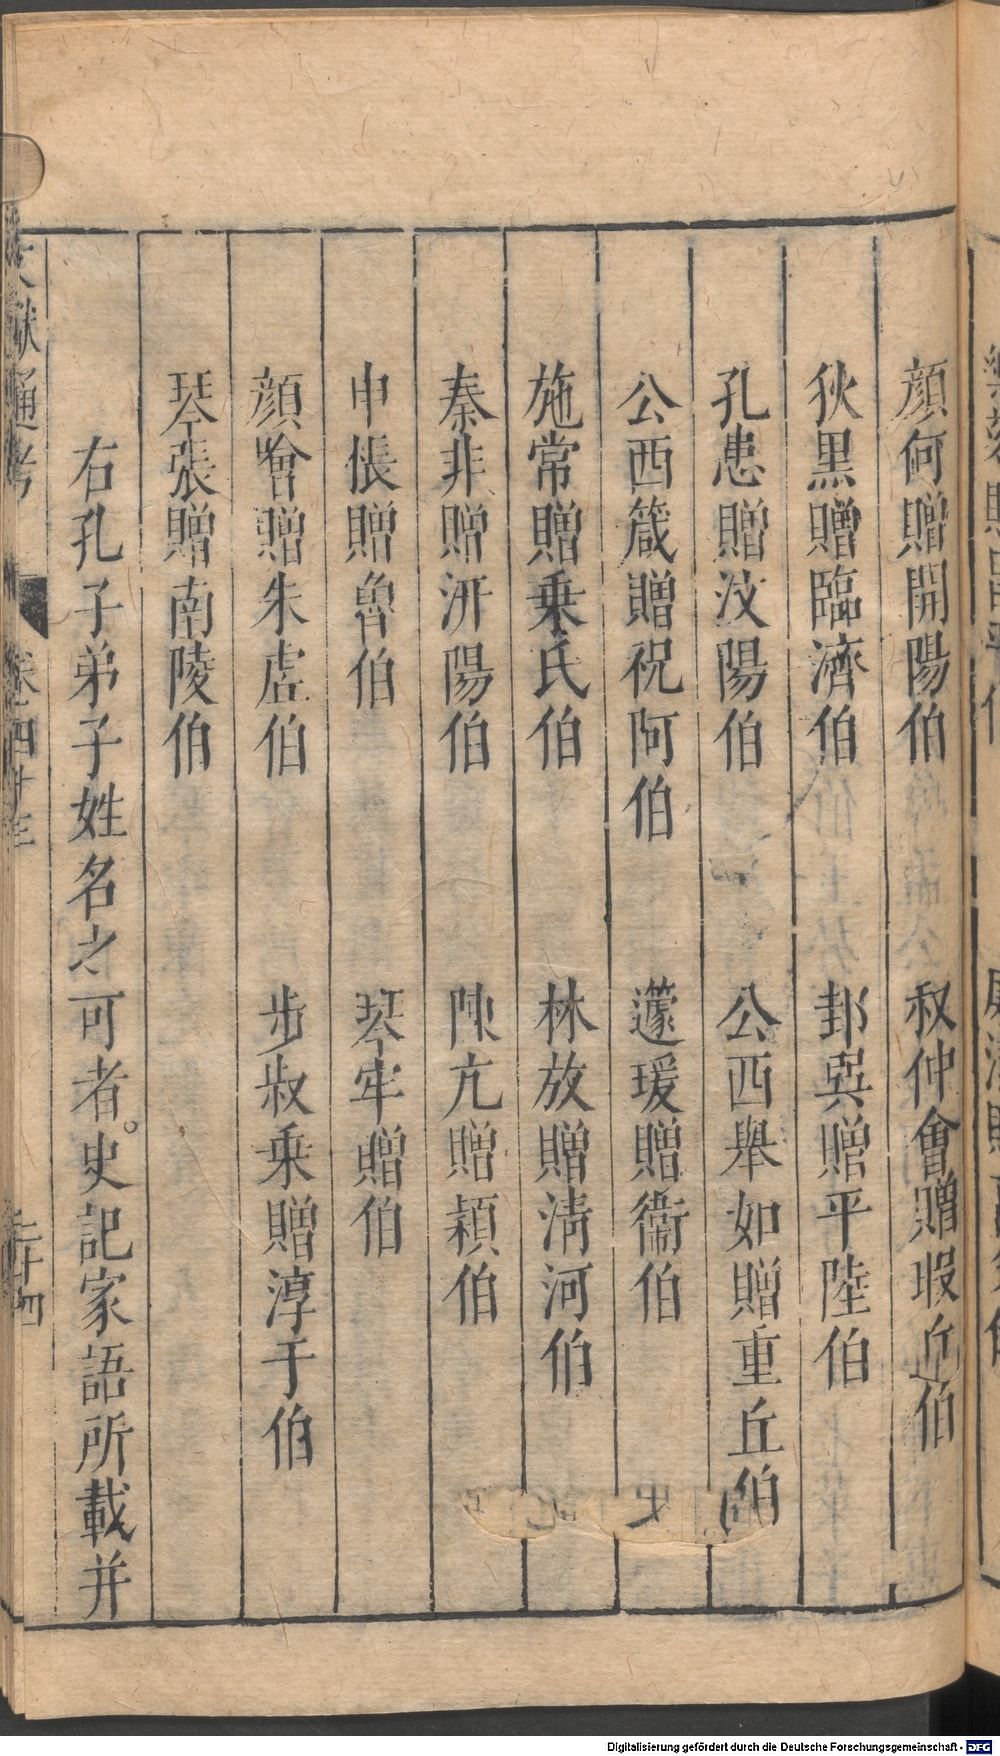 顔何贈開陽伯　叔仲會贈瑕丘伯
狄黒贈臨濟伯　邽巽贈平陸伯
孔患贈汶陽伯　公西舉如贈重丘伯
公西箴贈祝阿伯　蘧瑗贈衞伯
施常贈乗氏伯　林放贈淸河伯
秦非贈汧陽伯　陳亢贈潁伯
申倀贈魯伯　琴牢贈伯
顔噲贈朱虛伯　步叔乗贈淳于伯
琴張贈南陵伯
右孔子弟子姓名之可者。史記家語所載并
文獻通考　卷四十三　二十四
Digitalisierung gefördert durch die Deutsche Forschungsgemeinschaft - DFG